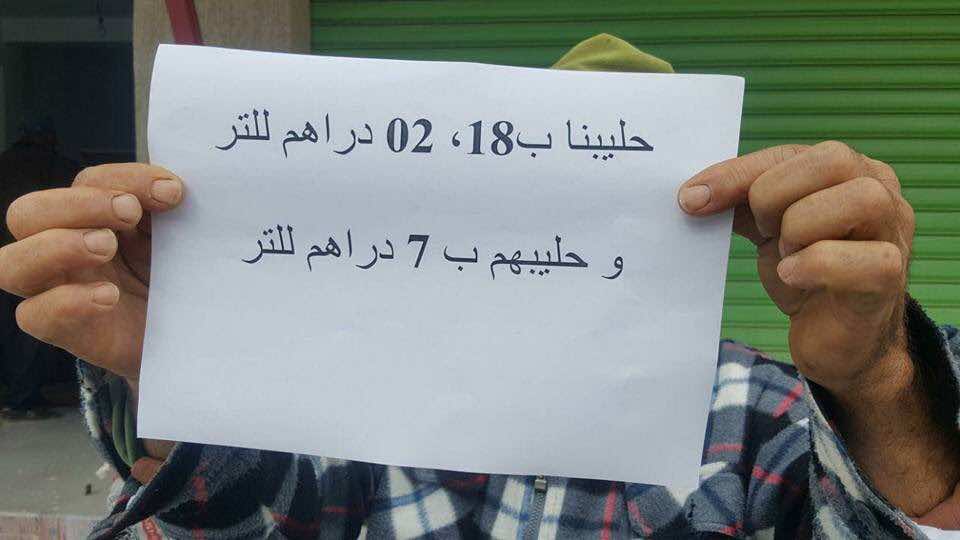 حليبنا ب18، 02 دراهم للتر
و حليبهم ب 7 دراهم للتر